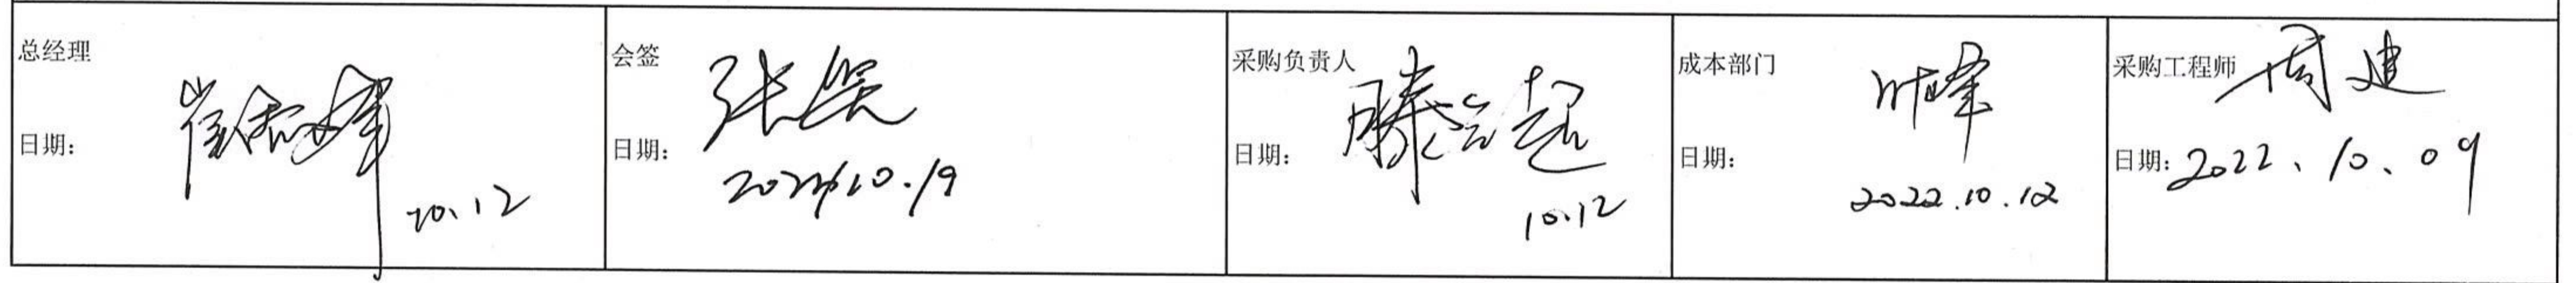 总经理
日期：
10.12
会签
张昊
日期：
2022.10.19
采购负责人
滕云超
日期：
10.12
成本部门
叶峰
日期：
2022.10.12
采购工程师
周建
日期：
2022.10.09